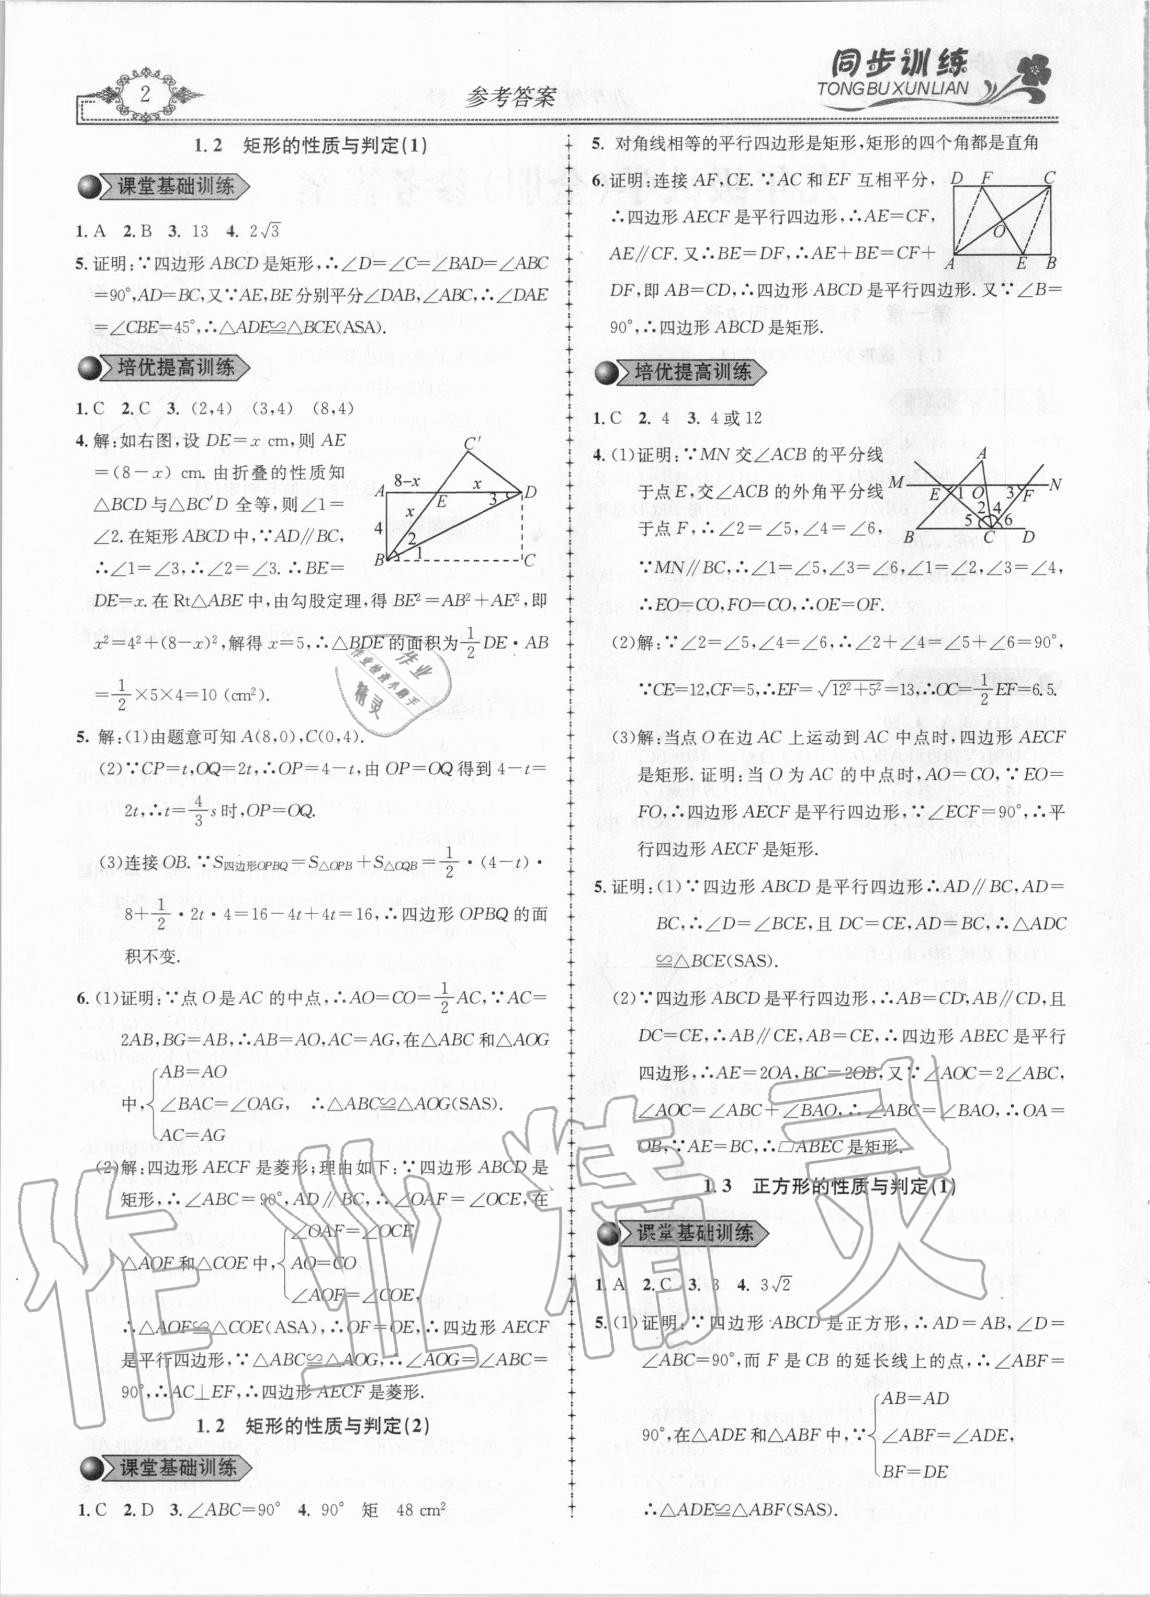 2
参考答案
同步训练
TONGBUXUNLIAN
1.2 矩形的性质与判定(1)
课堂基础训练
1. A 2. B 3. 13 4. 2√3
5. 证明:∵四边形 ABCD 是矩形,∴∠D=∠C=∠BAD=∠ABC
=90°,AD=BC,又∵AE,BE 分别平分∠DAB,∠ABC,∴∠DAE
=∠CBE=45°,∴△ADE≌△BCE(ASA).
培优提高训练
1. C 2. C 3. (2,4) (3,4) (8,4)
4. 解:如右图,设 DE=x cm,则 AE
=(8-x) cm. 由折叠的性质知
△BCD 与△BC′D 全等,则∠1=
∠2. 在矩形 ABCD 中,∵AD∥BC,
∴∠1=∠3,∴∠2=∠3. ∴BE=
DE=x. 在 Rt△ABE 中,由勾股定理,得 BE²=AB²+AE²,即
x²=4²+(8-x)²,解得 x=5,∴△BDE 的面积为1/2 DE·AB
=1/2×5×4=10 (cm²).
C′
8-x x
A E D
x 3
4 2
1
B C
5. 解:(1)由题意可知 A(8,0),C(0,4).
(2)∵CP=t,OQ=2t,∴OP=4-t,由 OP=OQ 得到 4-t=
2t,∴t=4/3 s时,OP=OQ.
(3)连接 OB. ∵S四边形OPBQ=S△OPB+S△OQB=1/2·(4-t)·
8+1/2·2t·4=16-4t+4t=16,∴四边形 OPBQ 的面
积不变.
6. (1)证明:∵点 O 是 AC 的中点,∴AO=CO=1/2 AC,∵AC=
2AB,BG=AB,∴AB=AO,AC=AG,在△ABC 和△AOG
AB=AO
中,{∠BAC=∠OAG, ∴△ABC≌△AOG(SAS).
AC=AG
(2)解:四边形 AECF 是菱形;理由如下:∵四边形 ABCD 是
矩形,∴∠ABC=90°,AD∥BC,∴∠OAF=∠OCE,在
∠OAF=∠OCE
△AOF 和△COE 中,{AO=CO
∠AOF=∠COE,
∴△AOF≌△COE(ASA),∴OF=OE,∴四边形 AECF
是平行四边形,∵△ABC≌△AOG,∴∠AOG=∠ABC=
90°,∴AC⊥EF,∴四边形 AECF 是菱形.
1.2 矩形的性质与判定(2)
课堂基础训练
1. C 2. D 3. ∠ABC=90° 4. 90° 矩 48 cm²
5. 对角线相等的平行四边形是矩形,矩形的四个角都是直角
6. 证明:连接 AF,CE. ∵AC 和 EF 互相平分,
∴四边形 AECF 是平行四边形,∴AE=CF,
AE∥CF. 又∴BE=DF,∴AE+BE=CF+
DF,即 AB=CD,∴四边形 ABCD 是平行四边形. 又∵∠B=
90°,∴四边形 ABCD 是矩形.
D F C
O
A E B
培优提高训练
1. C 2. 4 3. 4 或 12
4. (1)证明:∵MN 交∠ACB 的平分线
于点 E,交∠ACB 的外角平分线
于点 F,∴∠2=∠5,∠4=∠6,
∵MN∥BC,∴∠1=∠5,∠3=∠6,∴∠1=∠2,∠3=∠4,
∴EO=CO,FO=CO,∴OE=OF.
A
M E 1 O 3 F N
2 4
5 6
B C D
(2)解:∵∠2=∠5,∠4=∠6,∴∠2+∠4=∠5+∠6=90°,
∵CE=12,CF=5,∴EF=√(12²+5²)=13,∴OC=1/2 EF=6.5.
(3)解:当点 O 在边 AC 上运动到 AC 中点时,四边形 AECF
是矩形. 证明:当 O 为 AC 的中点时,AO=CO,∵EO=
FO,∴四边形 AECF 是平行四边形,∵∠ECF=90°,∴平
行四边形 AECF 是矩形.
5. 证明:(1)∵四边形 ABCD 是平行四边形∴AD∥BC,AD=
BC,∴∠D=∠BCE,且 DC=CE,AD=BC,∴△ADC
≌△BCE(SAS).
(2)∵四边形 ABCD 是平行四边形,∴AB=CD,AB∥CD,且
DC=CE,∴AB∥CE,AB=CE,∴四边形 ABEC 是平行
四边形,∴AE=2OA,BC=2OB,又∵∠AOC=2∠ABC,
∠AOC=∠ABC+∠BAO,∴∠ABC=∠BAO,∴OA=
OB,∵AE=BC,∴□ABEC 是矩形.
1.3 正方形的性质与判定(1)
课堂基础训练
1. A 2. C 3. 3 4. 3√2
5. (1)证明:∵四边形 ABCD 是正方形,∴AD=AB,∠D=
∠ABC=90°,而 F 是 CB 的延长线上的点,∴∠ABF=
AB=AD
90°,在△ADE 和△ABF 中,∵{∠ABF=∠ADE,
BF=DE
∴△ADE≌△ABF(SAS).
作业
作业检查小助手
精灵
作业精灵